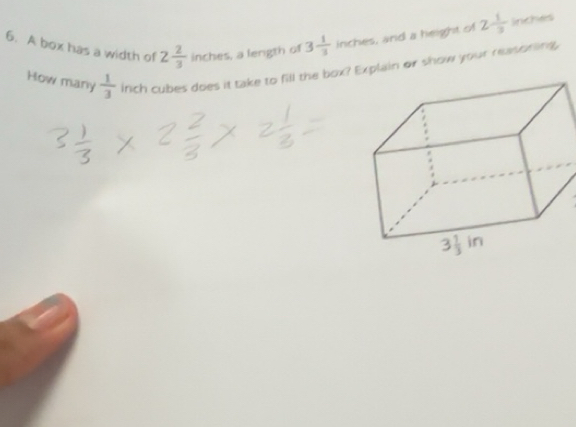 6. A box has a width of 2 2/3 inches, a length of 3 1/3 inches, and a height of 2 1/3 inches
How many 1/3 inch cubes does it take to fill the box? Explain or show your reasoning.
3 1/3 × 2 2/3 × 2 1/3 =
3 1/3 in